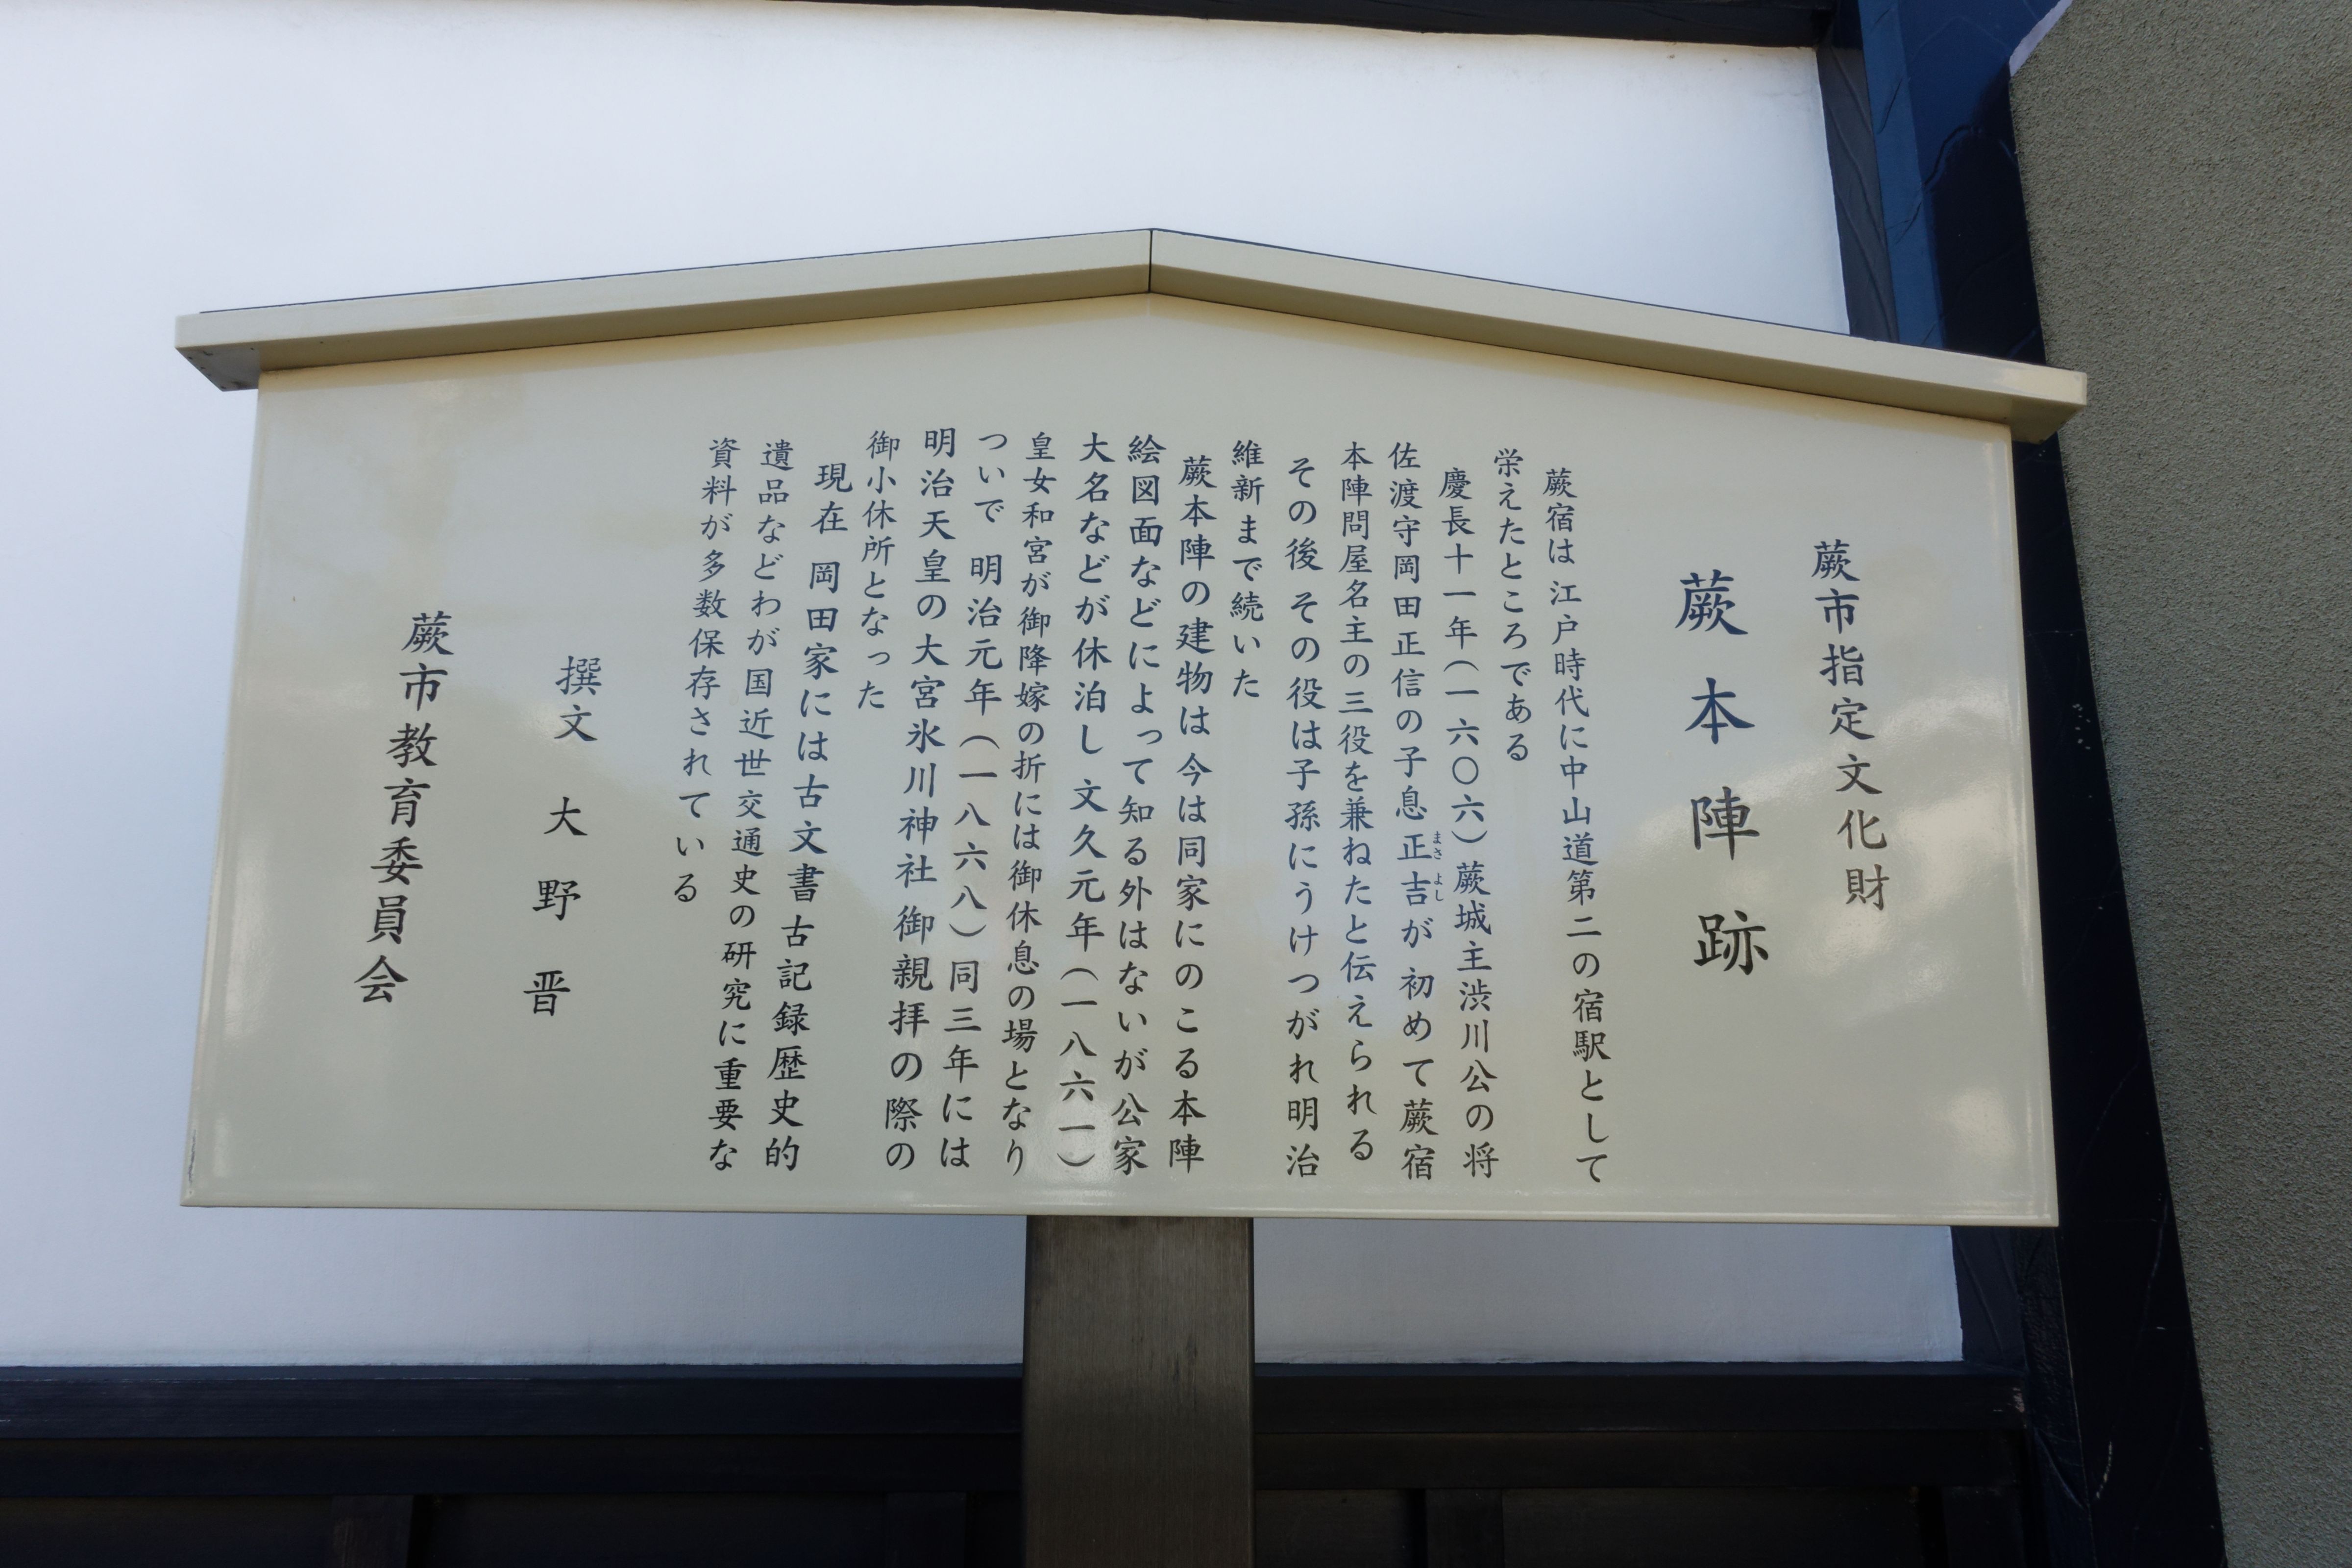 蕨市指定文化財
蕨本陣跡
蕨宿は 江戸時代に中山道第二の宿駅として
栄えたところである
慶長十一年(一六〇六)蕨城主渋川公の将
佐渡守岡田正信の子息正吉が 初めて蕨宿
まさよし
本陣問屋名主の三役を兼ねたと伝えられる
その後 その役は子孫にうけつがれ明治
維新まで続いた
蕨本陣の建物は 今は同家にのこる本陣
絵図面などによって知る外はないが 公家
大名などが休泊し 文久元年(一八六一)
皇女和宮が御降嫁の折には御休息の場となり
ついで 明治元年(一八六八)同三年には
明治天皇の大宮氷川神社御親拝の際の
御小休所となった
現在 岡田家には古文書古記録歴史的
遺品などわが国近世交通史の研究に重要な
資料が多数保存されている
撰文 大野晋
蕨市教育委員会